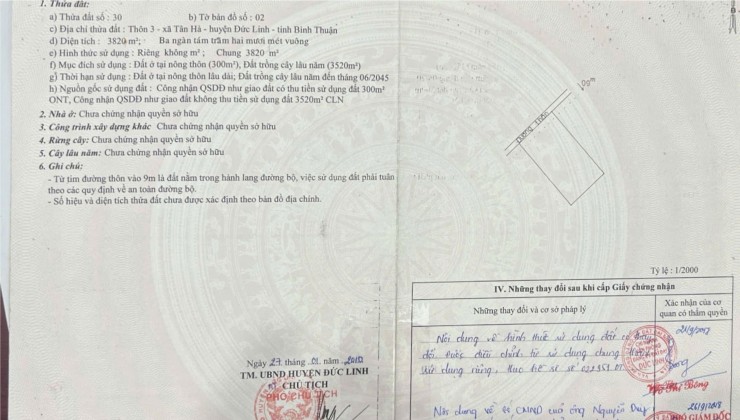 1. Thửa đất:
a) Thửa đất số : 30 b) Tờ bản đồ số : 02
c) Địa chỉ thửa đất : Thôn 3 - xã Tân Hà - huyện Đức Linh - tỉnh Bình Thuận
d) Diện tích : 3820 m²; Ba ngàn tám trăm hai mươi mét vuông
e) Hình thức sử dụng : Riêng không m² ; Chung 3820 m²
f) Mục đích sử dụng : Đất ở tại nông thôn (300m²), Đất trồng cây lâu năm (3520m²)
g) Thời hạn sử dụng : Đất ở tại nông thôn lâu dài; Đất trồng cây lâu năm đến tháng 06/2045
h) Nguồn gốc sử dụng đất : Công nhận QSDĐ như giao đất có thu tiền sử dụng đất 300m²
ONT, Công nhận QSDĐ như giao đất không thu tiền sử dụng đất 3520m² CLN
2. Nhà ở: Chưa chứng nhận quyền sở hữu
3. Công trình xây dựng khác Chưa chứng nhận quyền sở hữu
4. Rừng cây: Chưa chứng nhận quyền sở hữu
5. Cây lâu năm: Chưa chứng nhận quyền sở hữu
6. Ghi chú:
- Từ tim đường thôn vào 9m là đất nằm trong hành lang đường bộ, việc sử dụng đất phải tuân
theo các quy định về an toàn đường bộ.
- Số hiệu và diện tích thửa đất chưa được xác định theo bản đồ địa chính.
Ngày 27 tháng 01 năm
TM. UBND HUYỆN ĐỨC LINH
CHỦ TỊCH
PHÓ CHỦ TỊCH
Đường Thôn
Tỷ lệ : 1/2000
IV. Những thay đổi sau khi cấp Giấy chứng nhận
Những thay đổi và cơ sở pháp lý
Xác nhận của cơ
quan có thẩm quyền
Nội dung về hình thức sử dụng đất có thay
đổi, được điều chỉnh từ sử dụng chung thành
sử dụng riêng, theo hồ sơ số
Nội dung về số CMND của ông Nguyễn Duy
PHÓ GIÁM ĐỐC